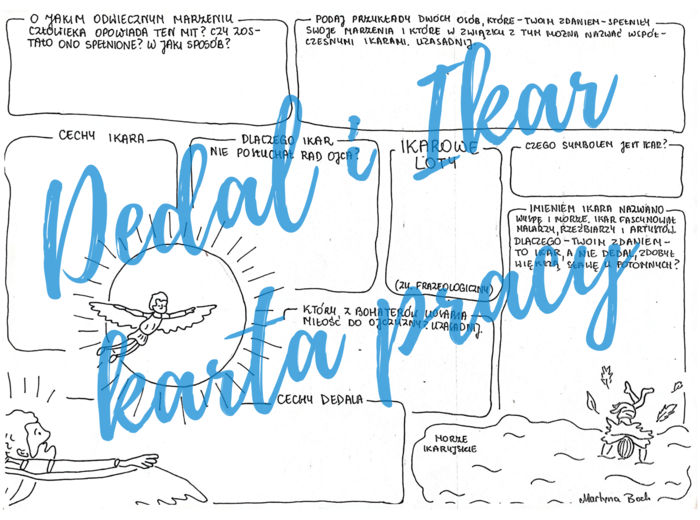 O JAKIM ODWIECZNYM MARZENIU
CZŁOWIEKA OPOWIADA TEN MIT? CZY ZOS-
TAŁO ONO SPEŁNIONE? W JAKI SPOSÓB?
PODAJ PRZYKŁADY DWÓCH OSÓB, KTÓRE - TWOIM ZDANIEM - SPEŁNIŁY
SWOJE MARZENIA I KTÓRE W ZWIĄZKU Z TYM MOŻNA NAZWAĆ WSPÓŁ-
CZESNYMI IKARAMI. UZASADNIJ.
CECHY IKARA
DLACZEGO IKAR
NIE POSŁUCHAŁ RAD OJCA?
IKAROWE
LOTY
(ZW. FRAZEOLOGICZNY)
CZEGO SYMBOLEM JEST IKAR?
IMIENIEM IKARA NAZWANO
WYSPĘ I MORZE. IKAR FASCYNOWAŁ
MALARZY, RZEŹBIARZY I ARTYSTÓW.
DLACZEGO - TWOIM ZDANIEM -
TO IKAR, A NIE DEDAL, ZDOBYŁ
WIĘKSZĄ SŁAWĘ U POTOMNYCH?
KTÓRY Z BOHATERÓW UOSABIA
MIŁOŚĆ DO OJCZYZNY? UZASADNIJ.
CECHY DEDALA
MORZE
IKARYJSKIE
Martyna Boch
Dedal i Ikar
karta pracy